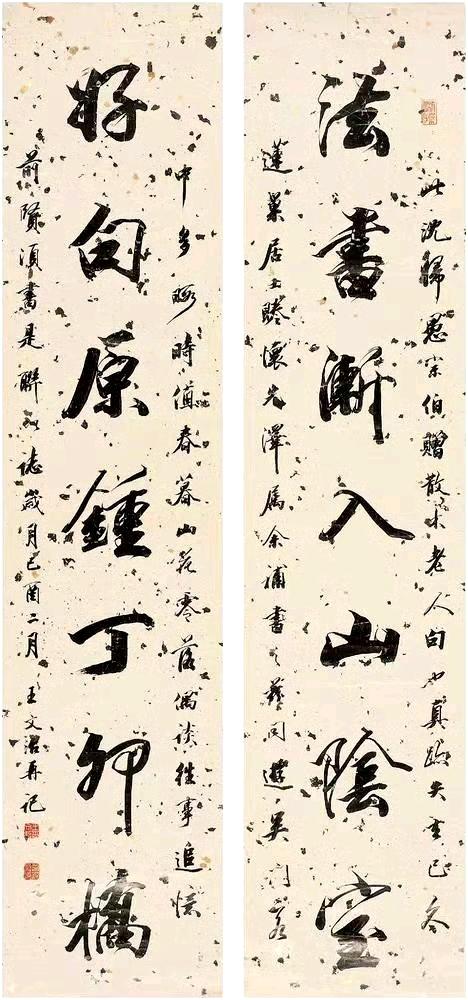 此沈歸愚宗伯贈散木老人句也真跡失去已久
法書漸入山陰室
蓮巢居士睠懷先澤屬余補書之同遊吳門客
中多暇時值春暮山花零落偶談往事追憶
好句原鍾丁卯橋
前賢須書是聯以誌歲月己酉二月王文治再記